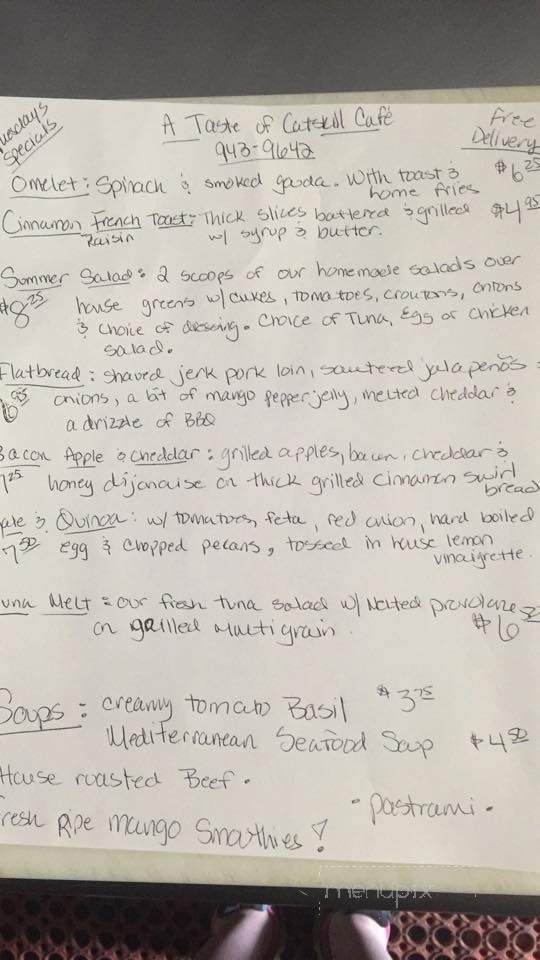 uesdays
Specials
A Taste of Catskill Café
943-9642
Free
Delivery
Omelet: Spinach & smoked gouda. With toast &
home fries
$6 25
Cinnamon French Toast: Thick slices battered & grilled
Raisin
w/ syrup & butter.
$4 95
Summer Salad: 2 scoops of our homemade salads over
$8 25
house greens w/ cukes, tomatoes, croutons, onions
& choice of dressing. Choice of Tuna, Egg or Chicken
salad.
Flatbread: shaved jerk pork loin, sautered jalapeños
6 95
onions, a bit of mango pepper jelly, melted cheddar &
a drizzle of BBQ
Bacon Apple & cheddar: grilled apples, bacon, cheddar &
7 25
honey dijonaise on thick grilled cinnamon swirl
bread
ale & Quinoa: w/ tomatoes, feta, red onion, hard boiled
7 50
Egg & chopped pecans, tossed in house lemon
vinaigrette.
una Melt: our fresh tuna salad w/ Melted provolone
on grilled Multigrain.
$6
Soups: creamy tomato Basil $3 75
Mediterranean Seafood Soup $4 50
House roasted Beef.
- pastrami -
resh Ripe mango Smoothies!
menupix